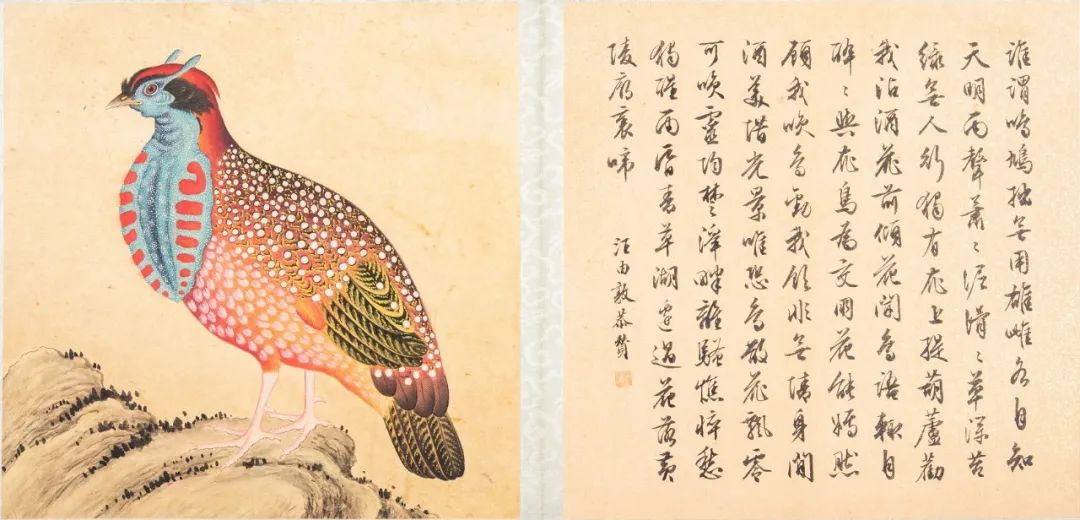 誰謂鳴鳩拙無用雄雌各自知
天明雨聲蕭〻泥滑〻草深苔
綠無人行獨有花上提葫蘆勸
我沽酒花前傾花開鳥語輒自
醉〻與花鳥為交朋花能嫣然
顧我笑鳥勸我飲非無情身閒
酒美惜光景唯恐鳥散花飄零
可笑靈均楚澤畔離騷憔悴愁
獨醒雨昏青草湖邊過花落黃
陵廟裏啼
汪由敦恭贊